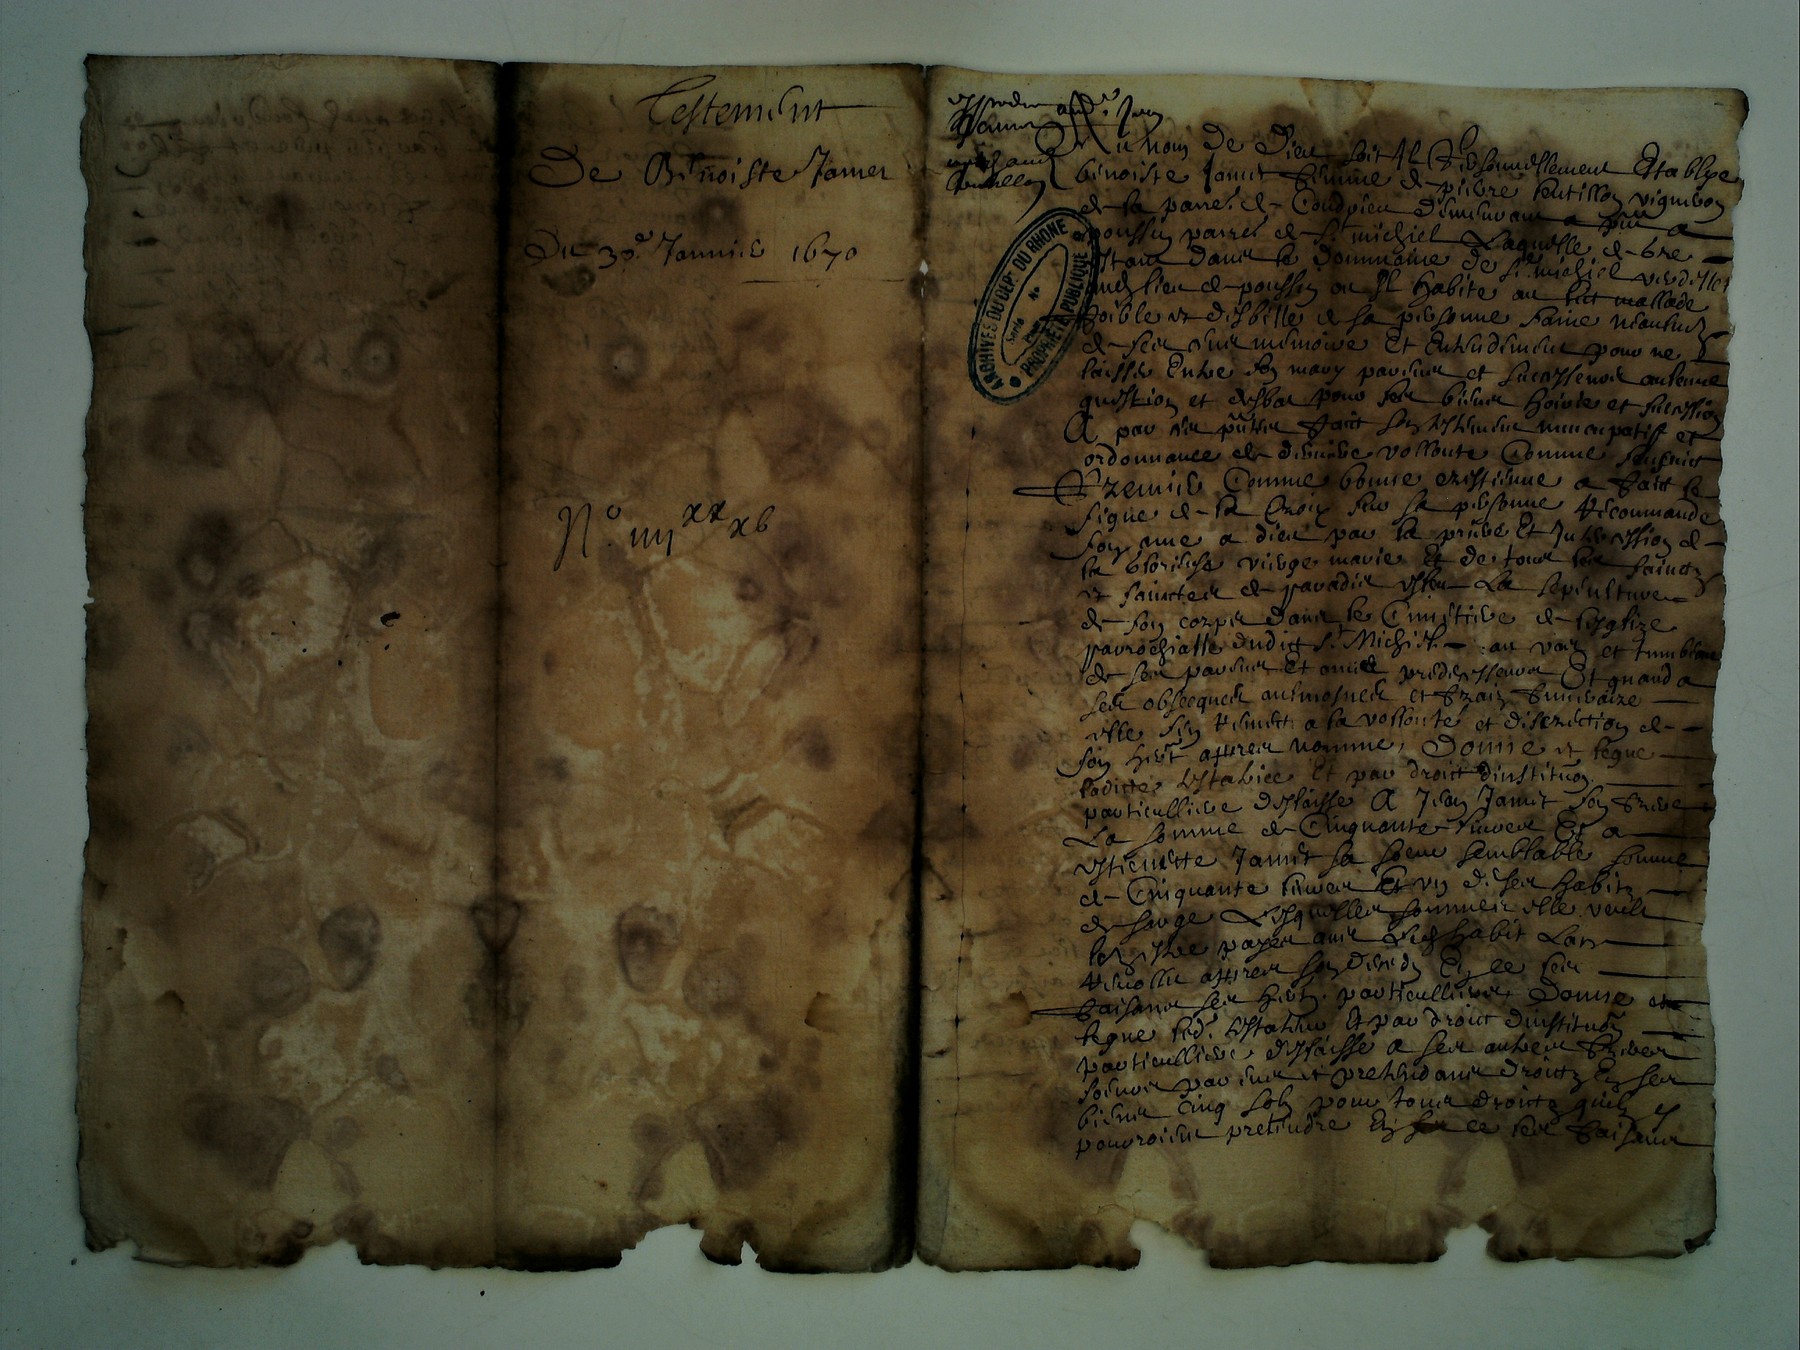 Testement
De Benoiste Jamet
Du 30e Janvier 1670
No. iiiixx xv
ARCHIVES DU DEPT. DU RHONE
Serie No
PROPRIÉTÉ PUBLIQUE
Au Nom de Dieu soit Il Personnellement Establye
benoiste Jamet femme de pierre vigneron
de la parre. de Condrieu demeurant a
poussin parre. de St michiel Laquelle de gre
estant dans le dommaine de St. michiel
aud. lieu de poussin ou Il habite au lict mallade
foible et desbille de sa personne saine
de ses sens memoire Et Entendement pour ne
laisser Entre ses parens et successeurs aulcune
question et desbat pour ses biens hoirie et succession
A par ces pntes fait son testement nuncupatif et
ordonnance de derniere vollonte Comme sensuict
Premier Comme bonne crestienne a faict le
signe de la Croix sur sa personne Recommande
son ame a dieu par la priere Et Intercession de
la glorieuse vierge marie Et de tous les sainctz
et sainctes de paradis eslu La sepulture
de son corps dans le Cimetiere de lesglize
parrochialle dudict St Michiel au vas et tumbeau
de ses parens Et amis predecesseurs Et quand a
ses obsecques aulmosnes et fraiz funeraire
elle sen remect a la vollonte et discrection de
son hert. appres nomme, Donne et legue
ladicte testatrice Et par droict dinstituon
particulliere deslaisse A Jean Jamet son frere
La somme de Cinquante livres Et a
estiennette Jamet sa soeur semblable somme
de Cinquante livres Et un de ses habitz
de sarge Lesquelles sommes elle veult
leur estre payes avec led. habit
appres son deceds En ce les
faisant ses hers. particulliers Donne et
legue lad. testatrice Et par droict dinstituon
particulliere deslaisse a ses aultres freres
soeurs parens et pretendans droictz En ses
biens Cinq solz pour tous droictz quilz y
pourroient pretendre En ce les faisant